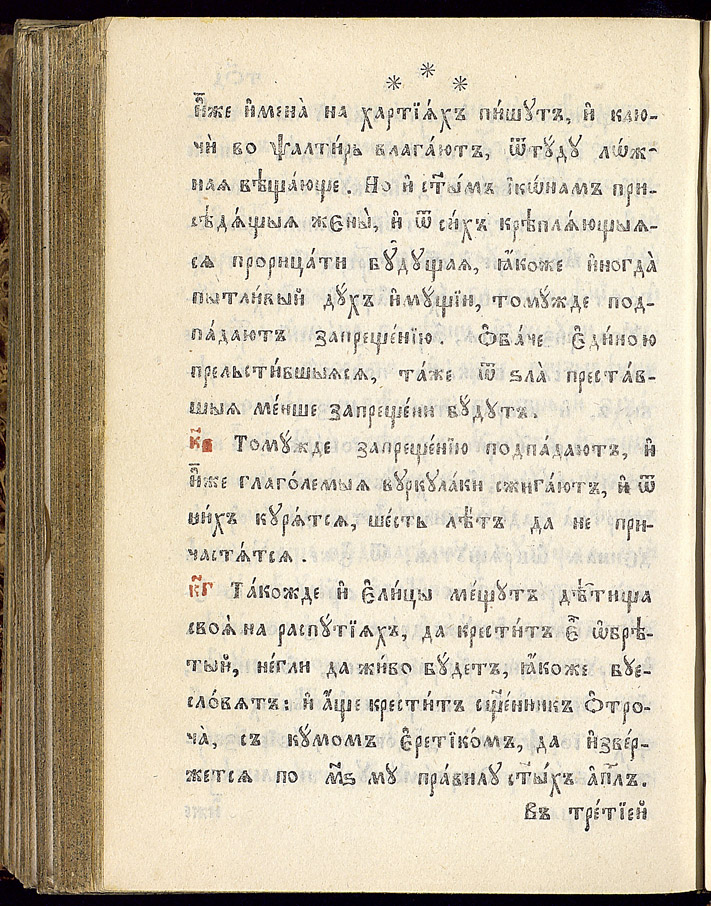 * * *
И҆̀же и҆мена̀ на харті́ѧхъ пи́шꙋтъ, и҆ клю-
чѝ во ѱалти́рь влага́ютъ, ѿтꙋдꙋ лѡ́ж-
наѧ вѣща́юще. Но и҆ ст҃ы́мъ і҆кѡ́намъ при-
сѣдѧ́щыѧ жєны̀, и҆ ѿ си́хъ крѣплѧ́ющыѧ-
сѧ прорица́ти бꙋ́дꙋщаѧ, ꙗ҆́коже и҆ногда̀
пытли́вый дꙋ́хъ и҆мꙋ́щїи, томꙋ́жде под-
па́даютъ запреще́нїю. Ѻ҆ба́че є҆ди́ною
прельсти́вшыѧсѧ, та́же ѿ ѕла̀ преста́в-
шыѧ ме́нше запреще́ни бꙋ́дꙋтъ.
к҃в Томꙋ́жде запреще́нїю подпа́даютъ, и҆
и҆̀же глаго́лемыѧ вꙋркꙋла́ки сжига́ютъ, и҆ ѿ
ни́хъ кꙋрѧ́тсѧ, ше́сть лѣ́тъ да не при-
частѧ́тсѧ.
к҃г Та́кожде и҆ є҆ли́цы ме́щꙋтъ дѣ́тища
своѧ̀ на распꙋ́тїѧхъ, да крести́тъ є҆̀ ѡ҆брѣ́-
тый, не́гли да жи́во бꙋ́детъ, ꙗ҆́коже бꙋе-
сло́вѧтъ: и҆ а҆́ще крести́тъ сщ҃е́нникъ ѻ҆тро-
ча̀, съ кꙋмомъ є҆ретіко́мъ, да и҆зве́р-
жетсѧ по м҃ѕ мꙋ пра́вилꙋ ст҃ы́хъ а҆п҃лъ.
Въ тре́тїей